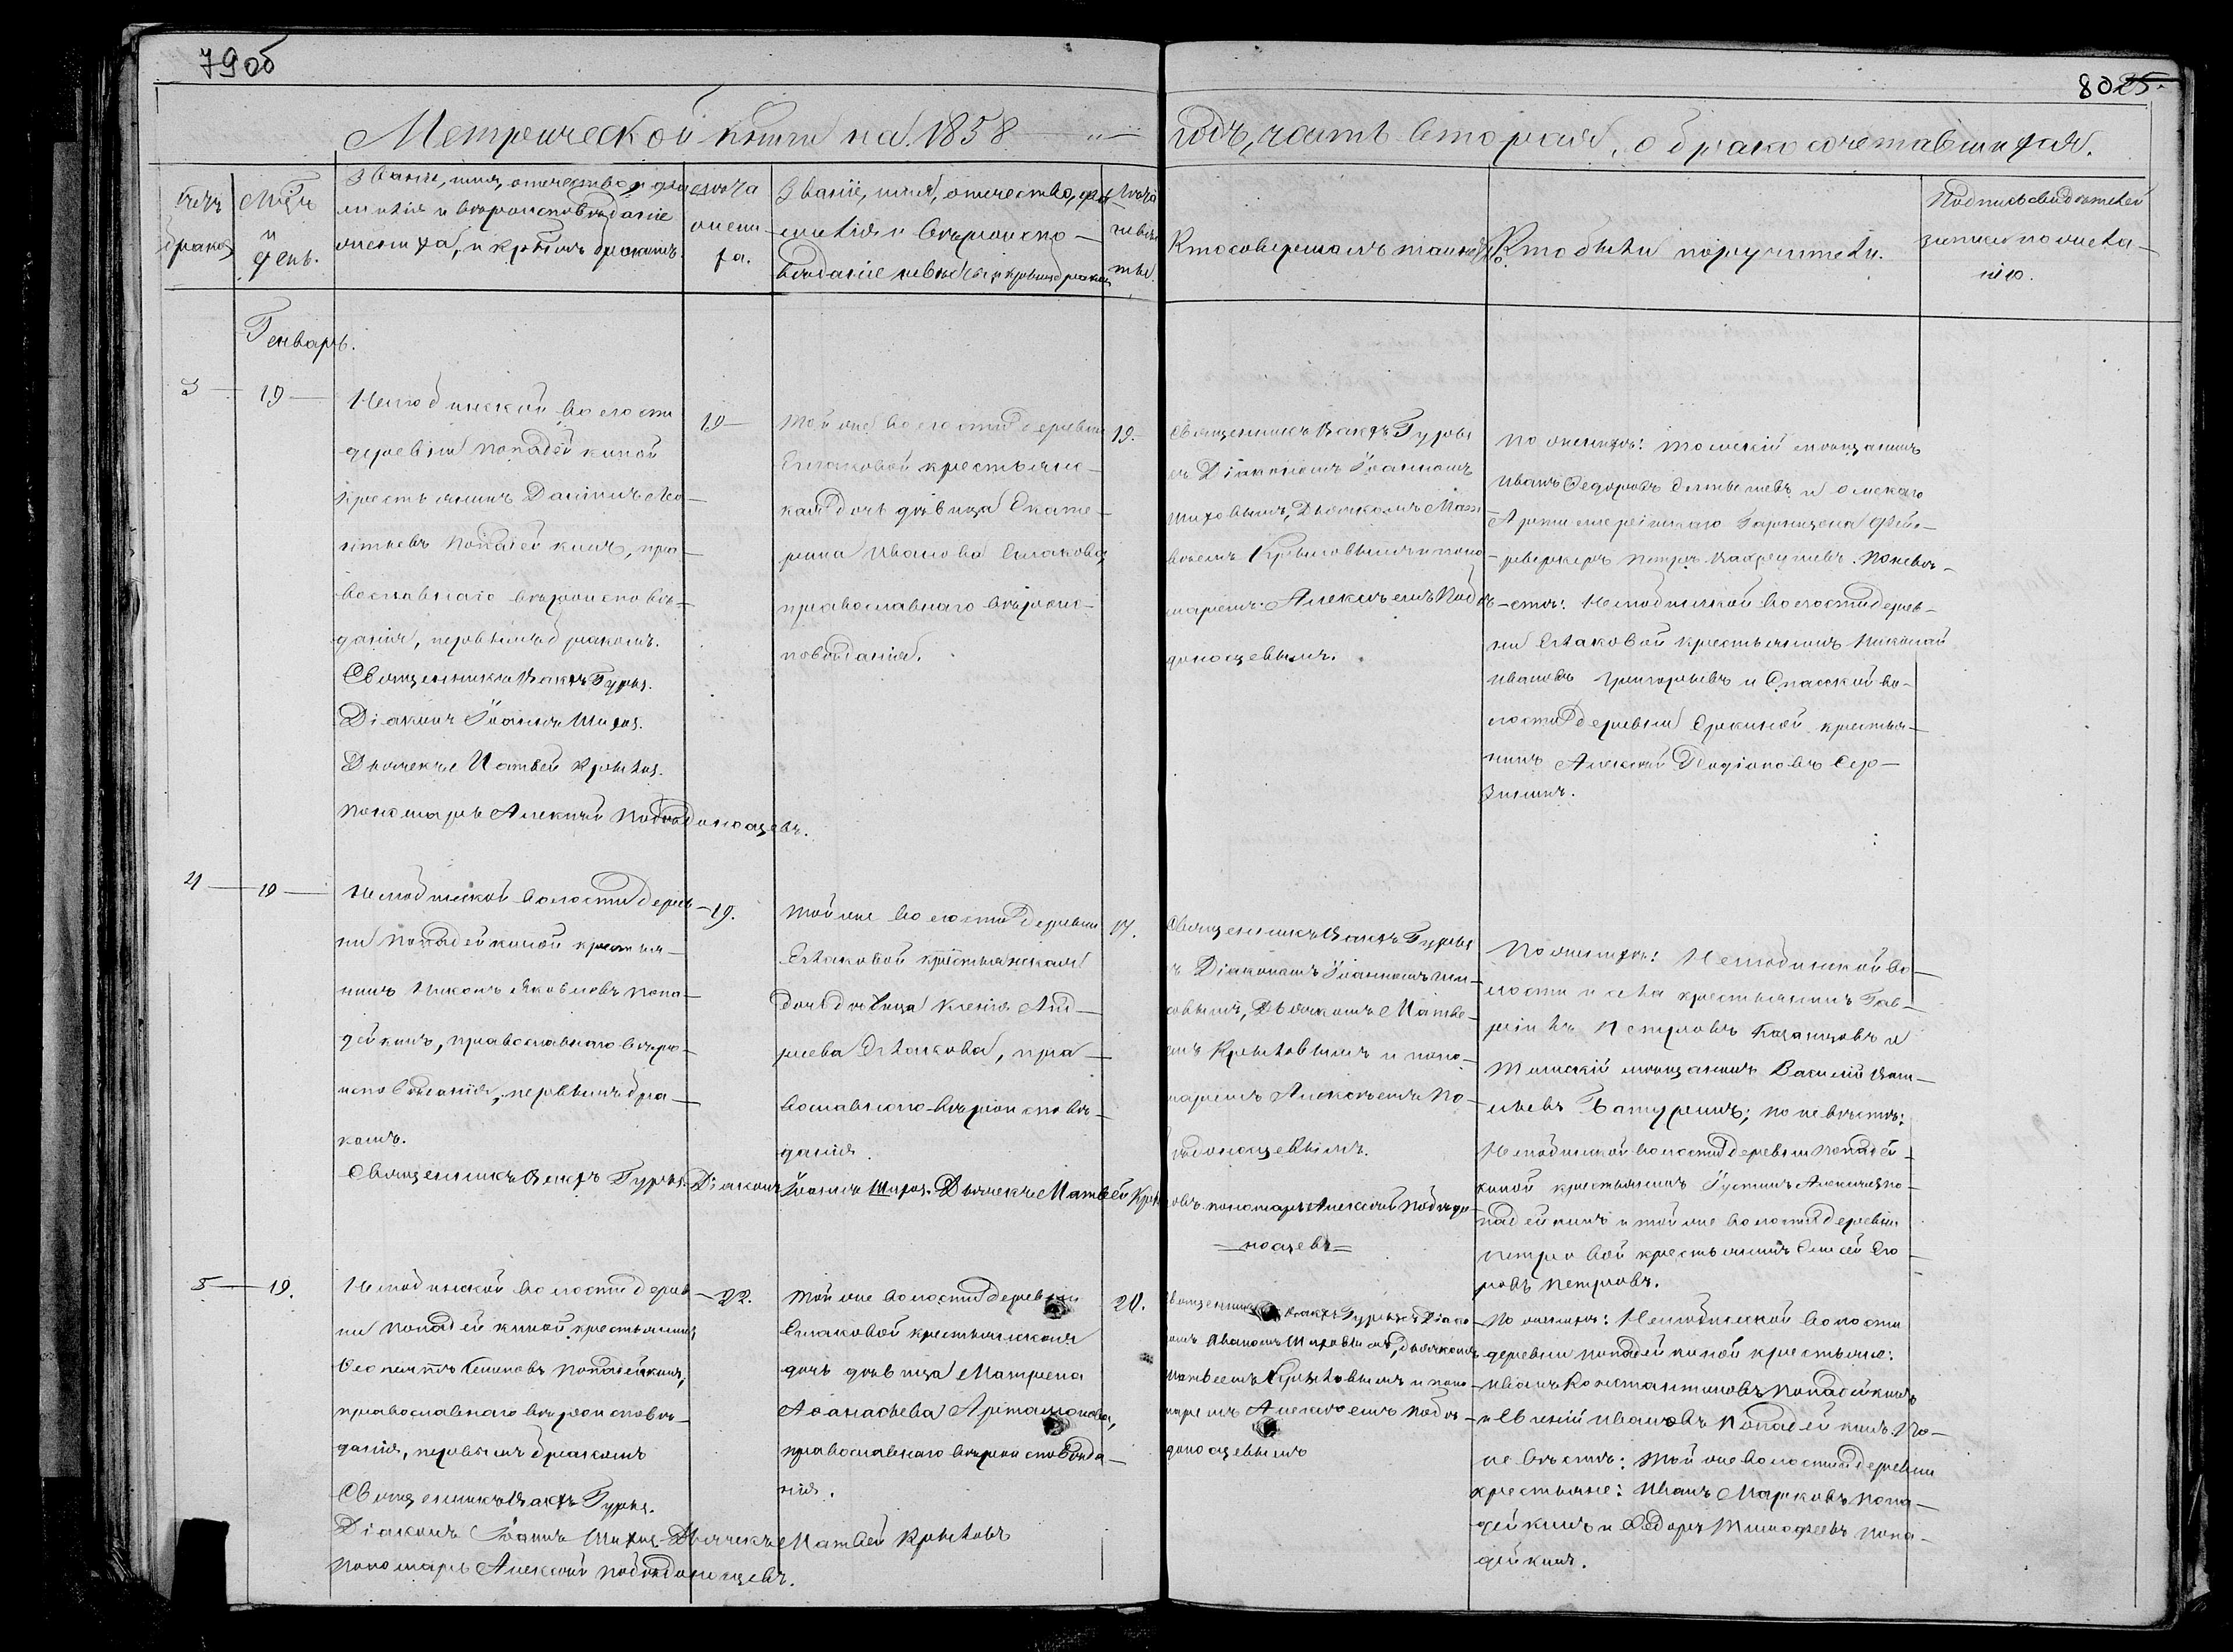 79об
80 25.
Метрической книги на 1858
годъ, часть вторая, о бракосочетавшихся.
Счетъ
браковъ
Мѣсяцъ
и
день.
Званіе, имя, отечество, фа-
милія и вѣроисповѣданіе
жениха, и которымъ бракомъ.
лѣта
жени-
ха.
Званіе, имя, отечество, фа-
милія и вѣроиспо-
вѣданіе невѣсты, и которымъ бракомъ
лѣта
невѣс-
ты.
Кто совершалъ таинство.
Кто были поручители.
Подпись свидѣтелей
записи по жела-
нію.
Генварь.
3
19
Нелюбинской волости
деревни Попадейкиной
крестьянинъ Даніилъ
Попадейкинъ, пра-
вославнаго вѣроисповѣ-
данія, первымъ бракомъ.
Священникъ Гурьевъ.
Діаконъ Іоаннъ Шиховъ.
Дьячекъ Матвей Крыловъ.
Пономарь Алексѣй Побѣдоносцевъ.
19
Той же волости деревни
Еллаковой крестьянс-
кая дочь дѣвица Екате-
рина Иванова Еллакова,
православнаго вѣроис-
повѣданія.
19.
Священникъ Гурьевъ
съ Діакономъ Іоанномъ
Шиховымъ, Дьячкомъ Мат-
вѣемъ Крыловымъ и поно-
маремъ Алексѣемъ Побѣ-
доносцевымъ.
По женихѣ: Томскій мѣщанинъ
Иванъ Федоровъ и Омскаго
Артиллерійскаго Гарнизона Фей-
рверкеръ Петръ Вахрушевъ. По невѣ-
стѣ: Нелюбинской волости дерев-
ни Еллаковой крестьянинъ Николай
Ивановъ Григорьевъ и Спасской во-
лости деревни крестья-
нинъ Алексѣй Родіоновъ
4
19
Нелюбинской волости дерев-
ни Попадейкиной крестья-
нинъ Никонъ Яковлевъ Попа-
дейкинъ, православнаго вѣро-
исповѣданія, первымъ бра-
комъ.
Священникъ Гурьевъ. Діаконъ Іоаннъ Шиховъ. Дьячекъ Матвей Крыловъ. пономарь Алексѣй Побѣдо-
носцевъ
19.
Той же волости деревни
Еллаковой крестьянская
дочь дѣвица Ксенія Анд-
реева Еллакова, пра-
вославнаго вѣроисповѣ-
данія.
Священникъ Гурьевъ
съ Діакономъ Іоанномъ Ши-
ховымъ, Дьячкомъ Матве-
емъ Крыловымъ и поно-
маремъ Алексѣемъ По-
бѣдоносцевымъ.
По женихѣ: Нелюбинской во-
лости и села крестьянинъ Гав-
ріилъ Петровъ Казанцовъ и
Томскій мѣщанинъ Василій
Батуринъ; по невѣстѣ:
Нелюбинской волости деревни Попадей-
киной крестьянинъ Густинъ Алексѣевъ По-
падейкинъ и той же волости деревни
Петровой крестьянинъ Елисей Его-
ровъ Петровъ.
5
19.
Нелюбинской волости дерев-
ни Попадейкиной крестьянинъ
Феопемптъ Попадейкинъ,
православнаго вѣроисповѣ-
данія, первымъ бракомъ
Священникъ Гурьевъ.
Діаконъ Іоаннъ Шиховъ. Дьячекъ Матвей Крыловъ
Пономарь Алексѣй Побѣдоносцевъ.
22.
Той же волости деревни
Еллаковой крестьянская
дочь дѣвица Матрена
Афанасьева Артамонова,
православнаго вѣроисповѣда-
нія.
20.
Священникъ Гурьевъ съ Діако-
номъ Іоанномъ Шиховымъ, дьячкомъ
Матвеемъ Крыловымъ и поно-
маремъ Алексѣемъ Побѣ-
доносцевымъ
По женихѣ: Нелюбинской волости
деревни Попадейкиной крестьяне:
Иванъ Константиновъ Попадейкинъ
и Евгеній Ивановъ Попадейкинъ. По
невѣстѣ: Той же волости и деревни
крестьяне: Иванъ Марковъ Попа-
дейкинъ и Федоръ Тимофеевъ Попа-
дейкинъ.